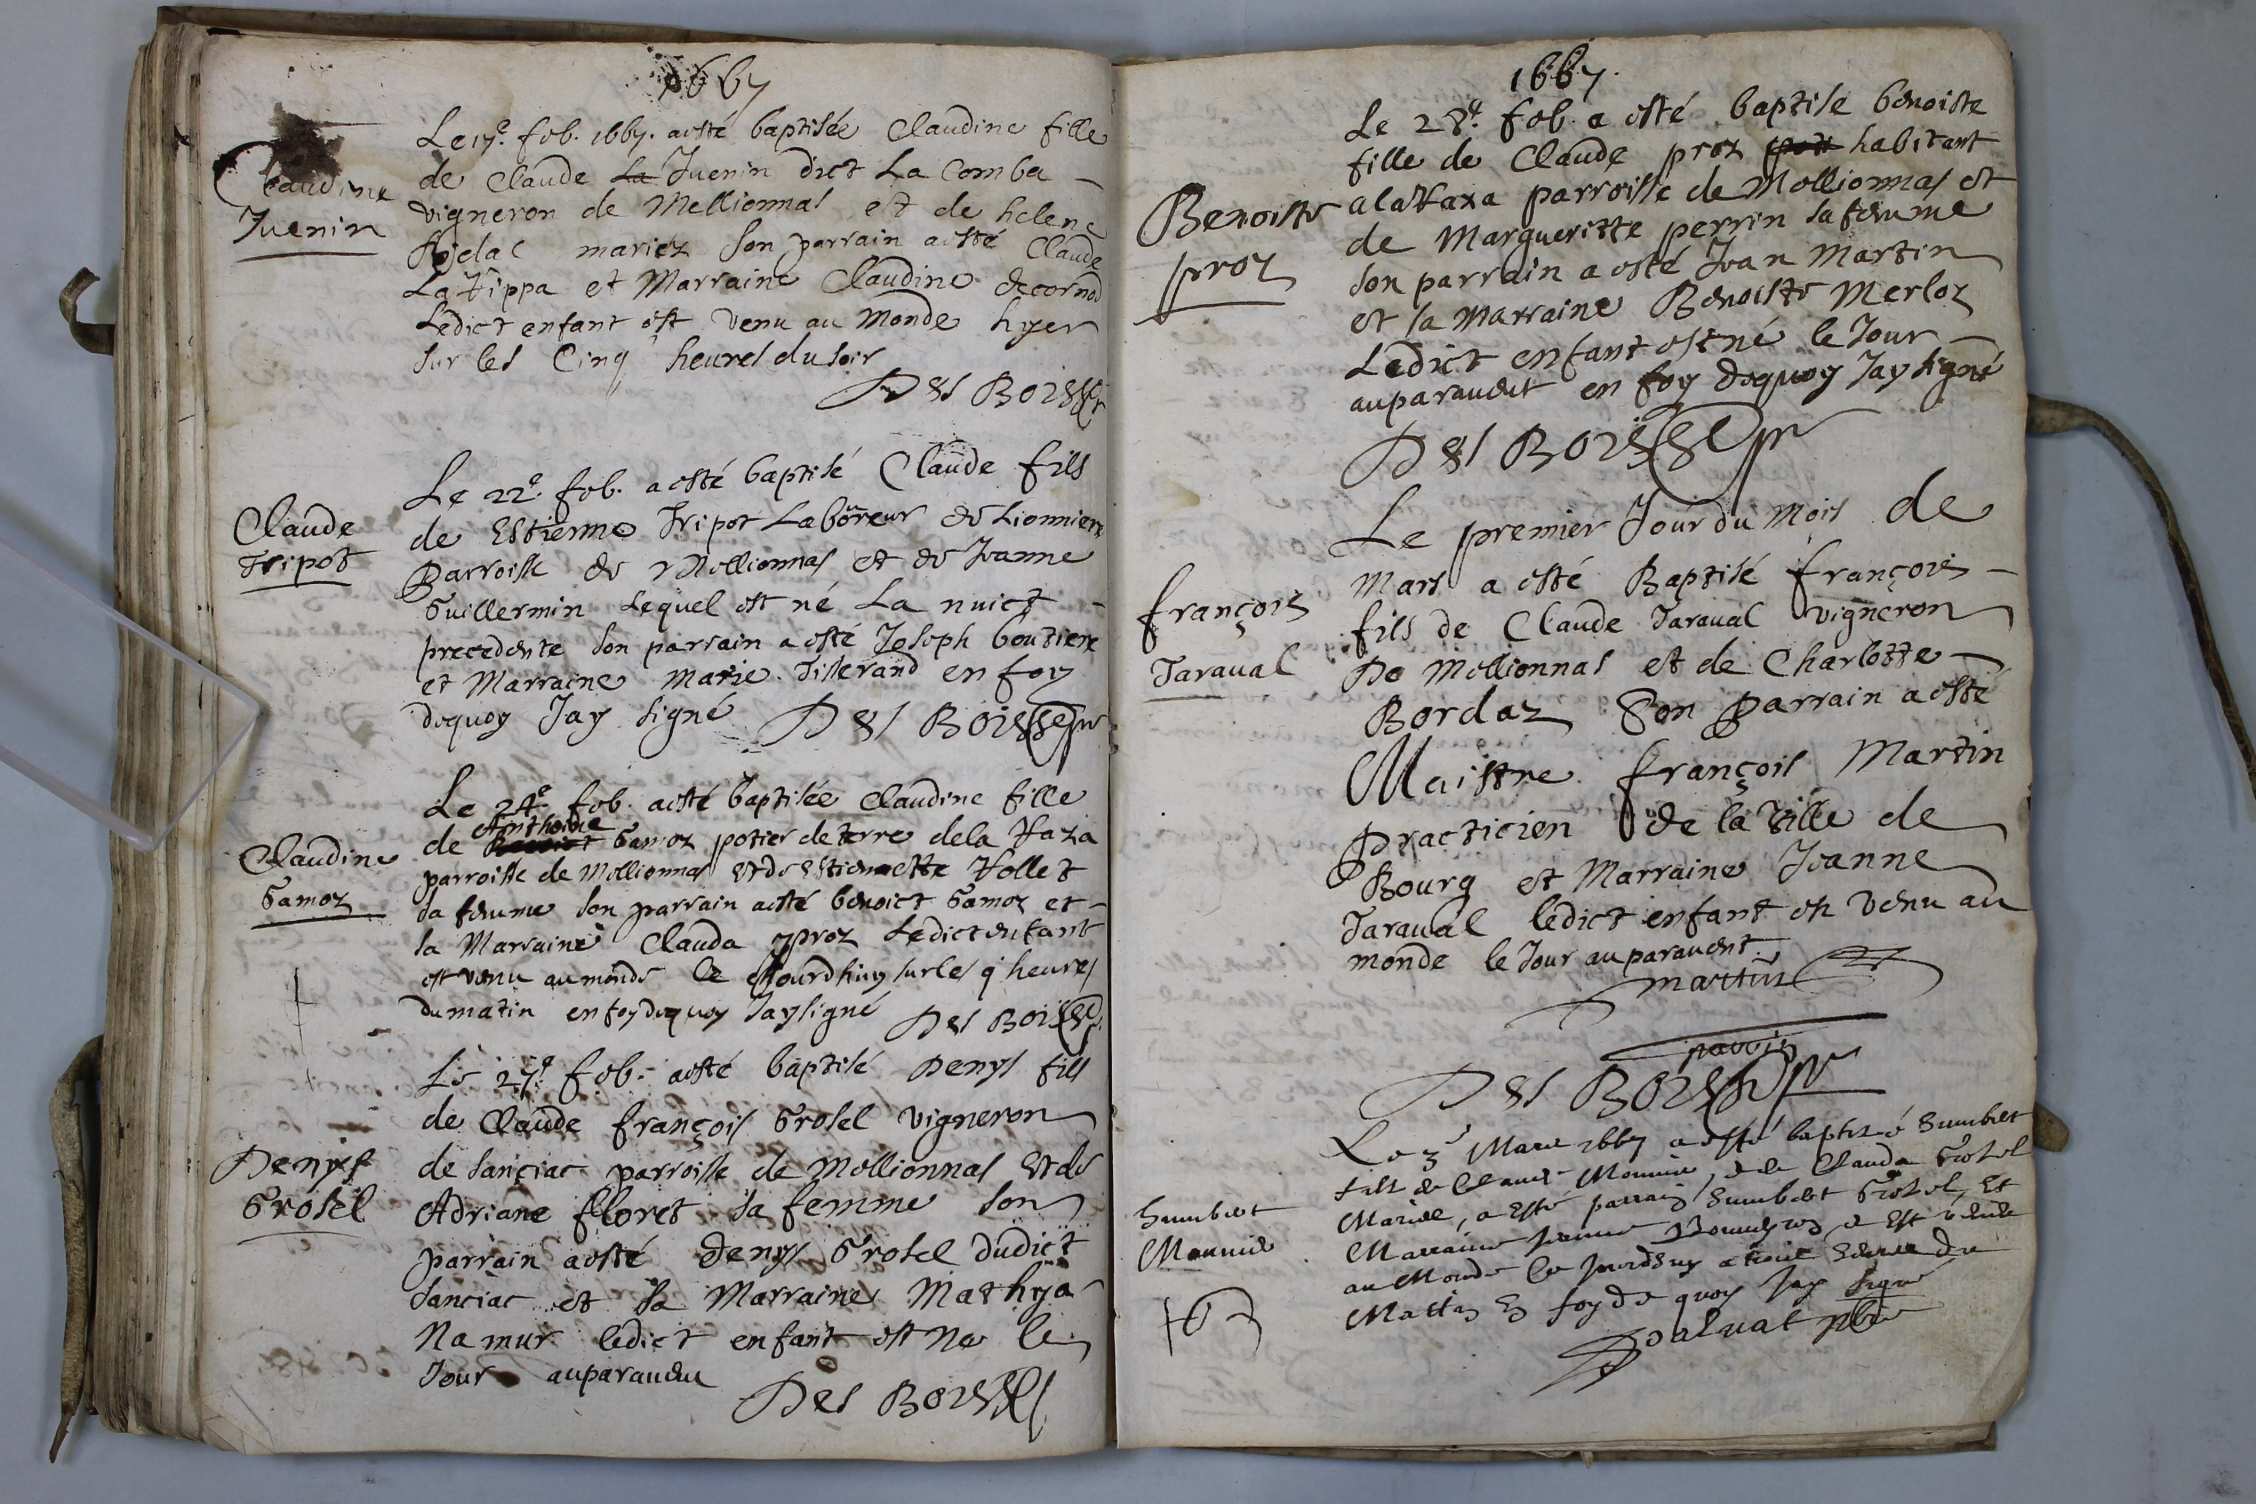 1667
Claudine
Juenin
Le 17e. feb. 1667. a esté baptisée Claudine fille
de Claude La Juenin dict La Comba
vigneron de Mellionnas et de helene
mariez son parrain a esté Claude
La Vippa et Marraine Claudine decornod
Ledict enfant est venu au Monde hyer
sur les Cinq heures du soir
Des Boisses
Claude
Tripot
Le 22e. feb. a esté baptisé Claude fils
de Estienne Tripot Laboureur de Lionniere
Parroisse de Mellionnas et de Jeanne
Guillermin Lequel est né La nuict
precedente son parrain a esté Joseph boutiere
et Marraine Marie Tisserand en foy
dequoy Jay signé Des Boisses pr
Claudine
Gamoz
Le 24e. feb. a esté baptisée Claudine fille
de Anthoine Benoict Gamoz potier de terre dela Vaza
parroisse de Mellionnas et de Estiennette Vollet
sa femme son parrain a esté benoict Gamoz et
sa Marraine Clauda proz Ledict enfant
est venu au monde le Jourdhuy sur les 9 heures
du matin en foy dequoy Jay signé Des Boisses
Denys
Grosel
Le 27e. feb. a esté baptisé Denys fils
de Claude françois Grosel vigneron
de sanciac parroisse de Mellionnas et de
Adriane floret sa femme son
parrain a esté denys Grosel dudict
sanciac et sa Marraine Mathya
Namur ledict enfant est ne le
Jour auparauen
Des Boisses
1667.
Benoiste
proz
Le 28e. feb. a esté baptise benoiste
fille de Claude proz habitant
a la Vaza parroisse de Mellionnas et
de Margueritte perrin sa femme
son parrain a esté Jean Martin
et sa Marraine Benoiste Merloz
Ledict enfant est né le Jour
auparauent en foy dequoy Jay signé
Des Boisses pr
françois
Taraual
Le premier Jour du Mois de
Mars a esté Baptisé françois
fils de Claude Taraual vigneron
De Mellionnas et de Charlotte
Bordaz Son Parrain a esté
Maistre françois Martin
Practicien de la Ville de
Bourg et Marraine Jeanne
Taraual ledict enfant est venu au
monde le Jour auparauent.
Martin
parrin
Des Boisses pr
humbert
Monnier
Le 3 Mars 1667 a esté baptisé humbert
fils de Claude Monnier, et de Clauda Grosel
Mariez, a esté parrain humbert Grosel, et
Marraine Jeanne et est venu
au Monde le a trois heures du
Matin En foy de quoy Jay signé
Daluat pbre